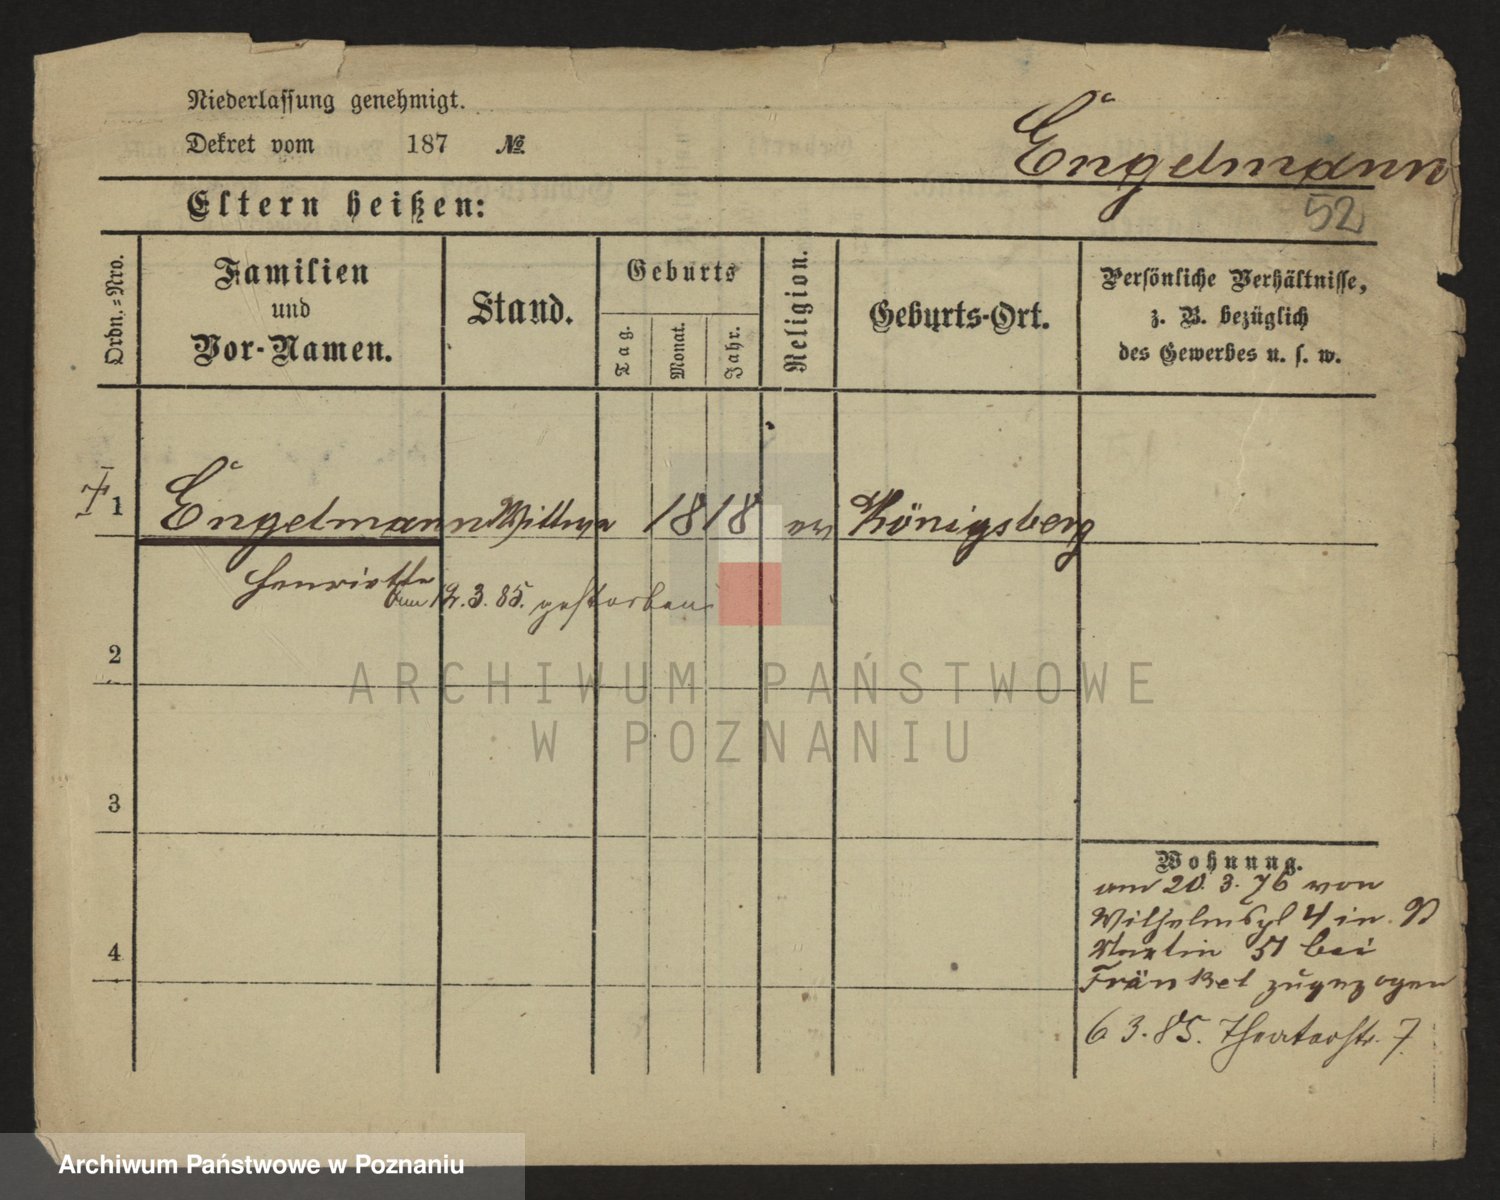 Niederlassung genehmigt.
Dekret vom 187 №
Engelmann
52
Eltern heißen:
Ordn.=Nro.
Familien
und
Vor-Namen.
Stand.
Geburts
Tag.
Monat.
Jahr.
Religion.
Geburts-Ort.
Persönliche Verhältnisse,
z. B. bezüglich
des Gewerbes u. s. w.
1 Engelmann Wittwe 1818 Königsberg
Henriette
am 12.3.85. gestorben
2
ARCHIWUM PAŃSTWOWE
W POZNANIU
3
4
Wohnung.
am 20.3.76 von
Wilhelmspl 4 in St
Martin 51 bei
Fränkel zugezogen
6 3.85. Theaterstr. 7.
Archiwum Państwowe w Poznaniu